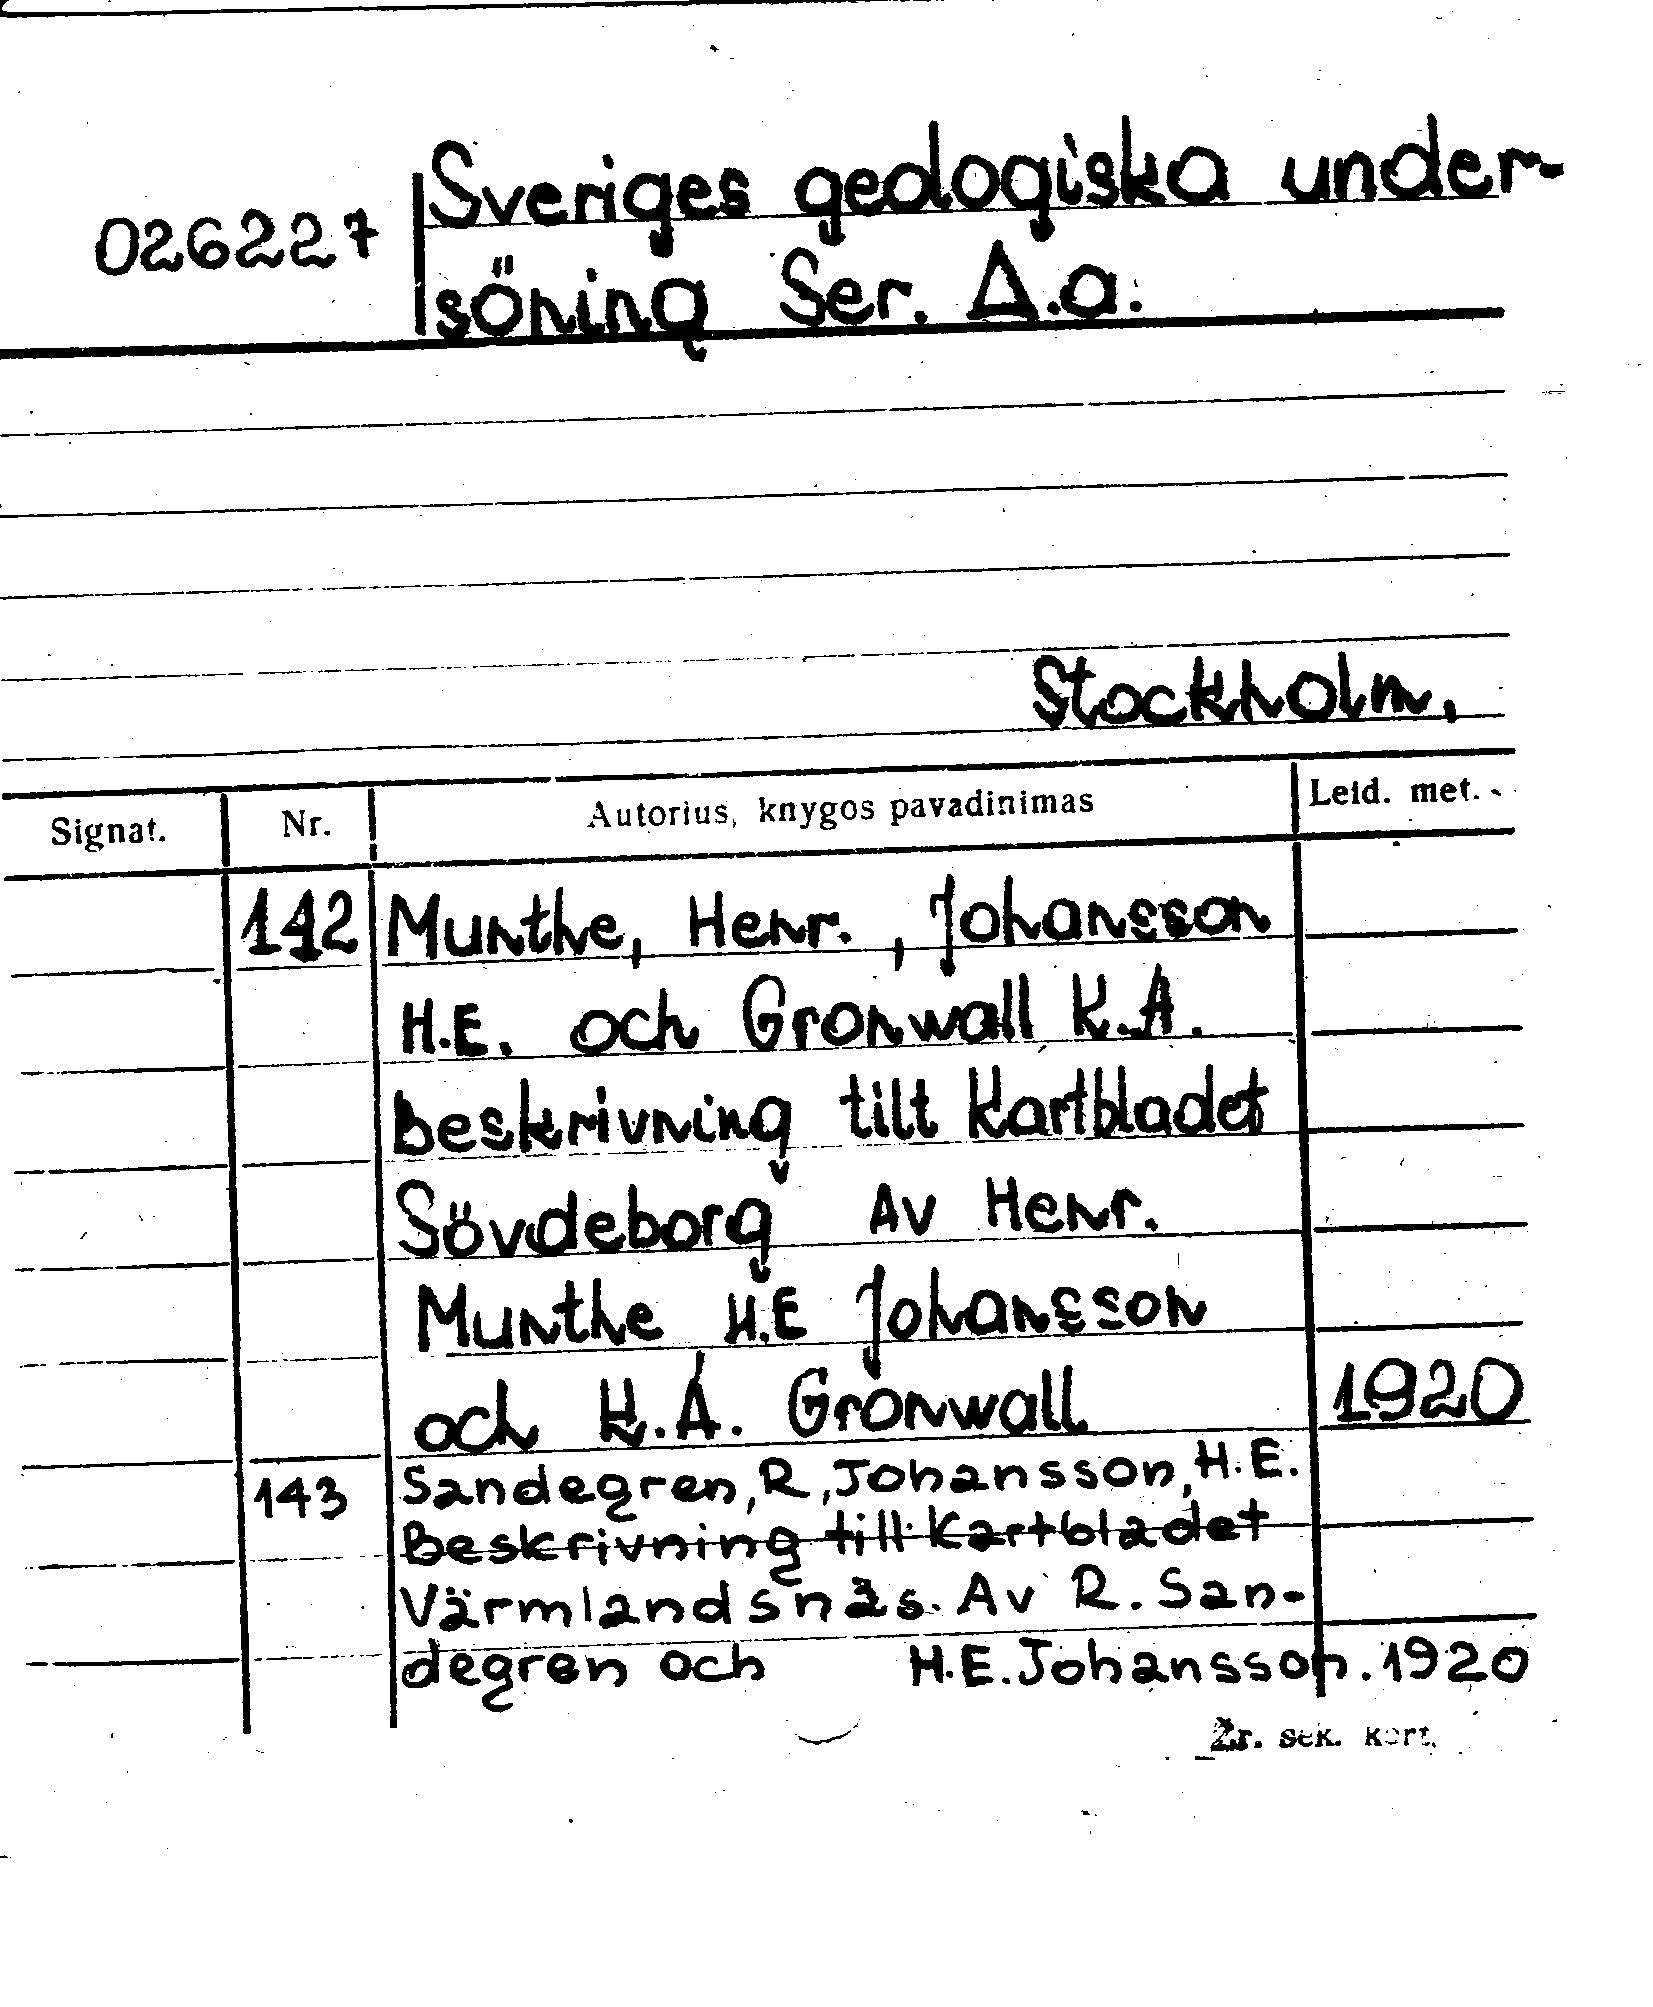 Sveriges geologiska under-
026227
söning Ser. A.a.
Stockholm.
Signat. Nr. Autorius, knygos pavadinimas Leid. met.
142 Munthe, Henr. , Johansson
H.E. och Gronwall K.A.
Beskrivning till Kartbladet
Sövdeborg Av Henr.
Munthe H.E Johansson
och K.A. Gronwall 1920
143 Sandegren, R, Johansson, H.E.
Beskrivning till kartbladet
Värmlandsnäs. Av R. San-
degren och H.E. Johansson. 1920
Žr. sek. kort.